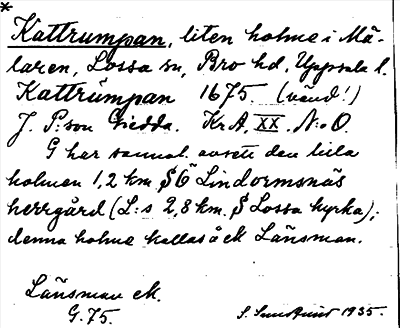 *
Kattrumpan, liten holme i Mä-
laren, Lossa sn, Bro hd, Uppsala l.
Kattrümpan 1675 (vänd!)
J. P:son Giedda. Kr.A. XX. N:o O.
G har sannol. avsett den lilla
holmen 1,2 km. S Ö Lindormsnäs
herrgård (L:s 2,8 km. S Lossa kyrka);
denna holme kallas å ek. Länsman.
Länsman ek.
G. 75.
S. Sundquist 1935.